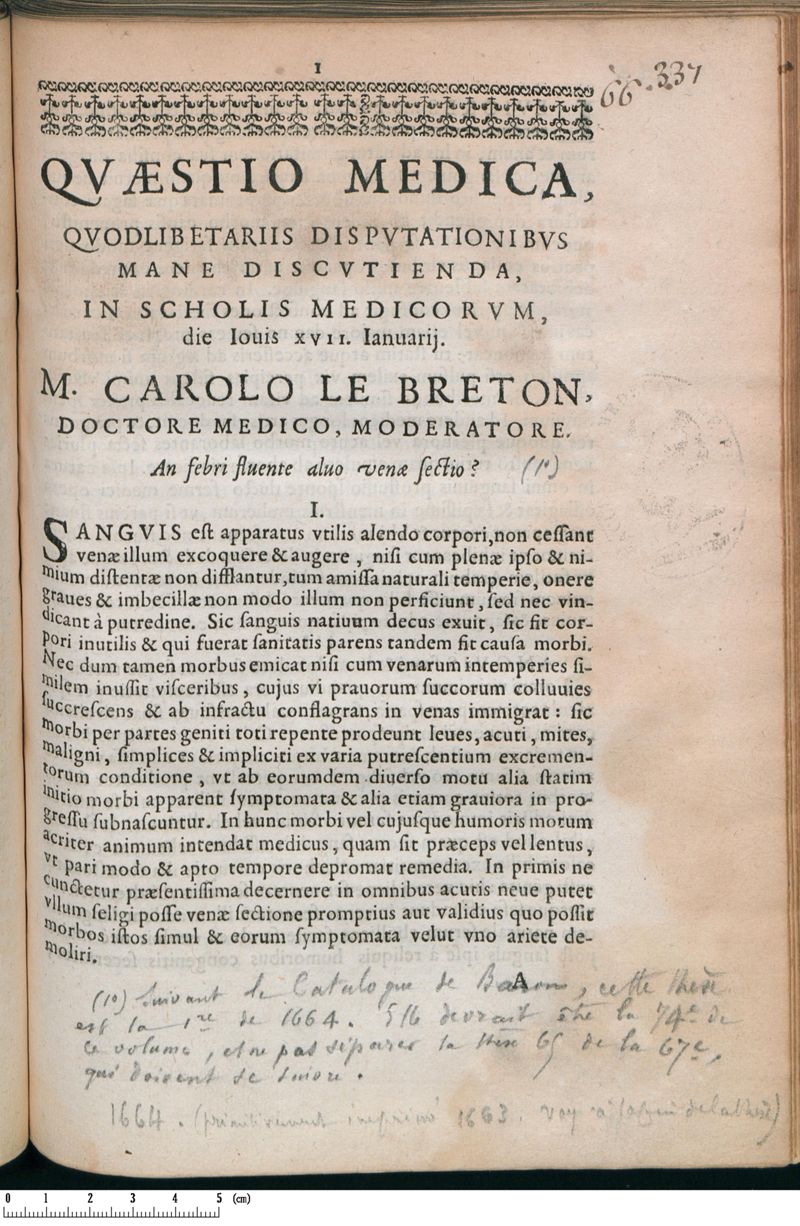 I
66 - 337
QVÆSTIO MEDICA,
QVODLIBETARIIS DISPVTATIONIBVS
MANE DISCVTIENDA,
IN SCHOLIS MEDICORVM,
die Iouis XVII. Ianuarij.
M. CAROLO LE BRETON,
DOCTORE MEDICO, MODERATORE.
An febri fluente aluo venæ sectio? (1°)
I.
SANGVIS est apparatus vtilis alendo corpori, non cessant
venæ illum excoquere & augere, nisi cum plenæ ipso & ni-
mium distentæ non difflantur, tum amissa naturali temperie, onere
graues & imbecillæ non modo illum non perficiunt, sed nec vin-
dicant à putredine. Sic sanguis natiuum decus exuit, sic fit cor-
pori inutilis & qui fuerat sanitatis parens tandem fit causa morbi.
Nec dum tamen morbus emicat nisi cum venarum intemperies si-
milem inussit visceribus, cujus vi prauorum succorum colluuies
succrescens & ab infractu conflagrans in venas immigrat: sic
morbi per partes geniti toti repente prodeunt leues, acuti, mites,
maligni, simplices & impliciti ex varia putrescentium excremen-
torum conditione, vt ab eorumdem diuerso motu alia statim
initio morbi apparent symptomata & alia etiam grauiora in pro-
gressu subnascuntur. In hunc morbi vel cujusque humoris motum
acriter animum intendat medicus, quam sit præceps vel lentus,
vt pari modo & apto tempore depromat remedia. In primis ne
cunctetur præsentissima decernere in omnibus acutis neue putet
vllum seligi posse venæ sectione promptius aut validius quo possit
morbos istos simul & eorum symptomata velut vno ariete de-
moliri.
A
(1°) Suivant le Catalogue de Baron, cette thèse
est la 1re de 1664. Elle devrait être la 74e de
ce volume, et ne pas séparer la thèse 65 de la 67e,
qui doivent se suivre.
1664. (primitivement imprimé 1663. voy. de la thèse)